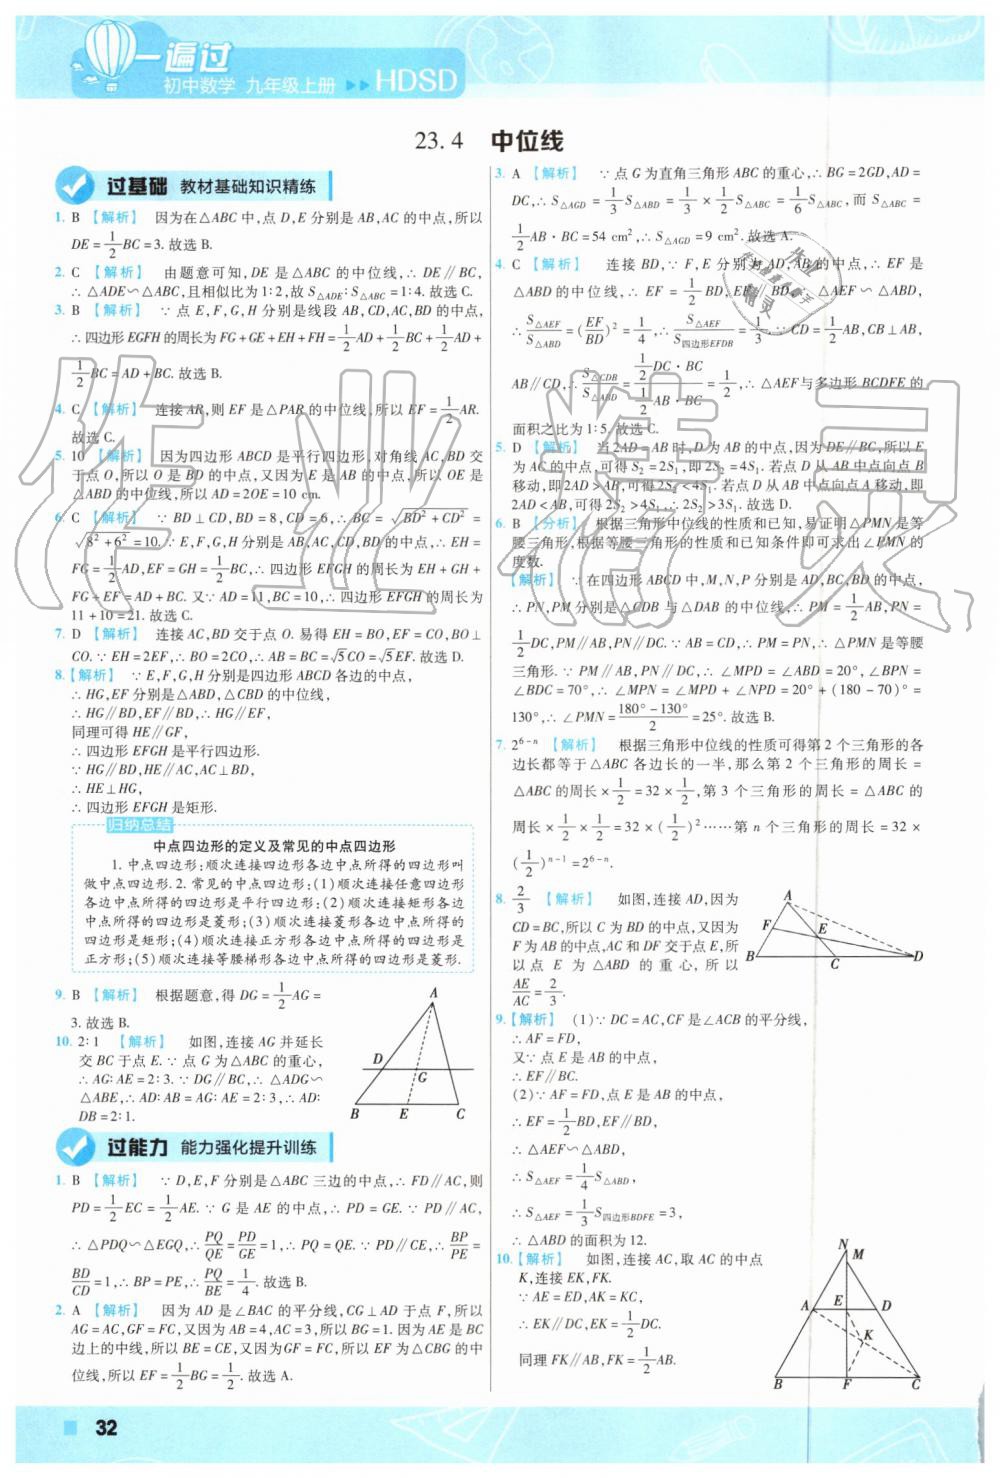 一遍过
初中数学 九年级上册 ▶▶ HDSD
23.4 中位线
过基础 教材基础知识精练
1. B 【解析】 因为在△ABC中,点D,E分别是AB,AC的中点,所以
DE=1/2BC=3.故选B.
2. C 【解析】 由题意可知,DE是△ABC的中位线,∴DE∥BC,
∴△ADE∽△ABC,且相似比为1:2,故S△ADE:S△ABC=1:4.故选C.
3. B 【解析】 ∵点E,F,G,H分别是线段AB,CD,AC,BD的中点,
∴四边形EGFH的周长为FG+GE+EH+FH=1/2AD+1/2BC+1/2AD+
1/2BC=AD+BC.故选B.
4. C 【解析】 连接AR,则EF是△PAR的中位线,所以EF=1/2AR.
故选C.
5. 10 【解析】 因为四边形ABCD是平行四边形,对角线AC,BD交
于点O,所以O是BD的中点,又因为E是AB的中点,所以OE是
△ABD的中位线,所以AD=2OE=10 cm.
6. C 【解析】 ∵BD⊥CD,BD=8,CD=6,∴BC=√(BD²+CD²)=
√(8²+6²)=10.∵E,F,G,H分别是AB,AC,CD,BD的中点,∴EH=
FG=1/2AD,EF=GH=1/2BC,∴四边形EFGH的周长为EH+GH+
FG+EF=AD+BC.又∵AD=11,BC=10,∴四边形EFGH的周长为
11+10=21.故选C.
7. D 【解析】 连接AC,BD交于点O.易得EH=BO,EF=CO,BO⊥
CO.∵EH=2EF,∴BO=2CO,∴AB=BC=√5CO=√5EF.故选D.
8.【解析】 ∵E,F,G,H分别是四边形ABCD各边的中点,
∴HG,EF分别是△ABD,△CBD的中位线,
∴HG∥BD,EF∥BD,∴HG∥EF,
同理可得HE∥GF,
∴四边形EFGH是平行四边形.
∵HG∥BD,HE∥AC,AC⊥BD,
∴HE⊥HG,
∴四边形EFGH是矩形.
归纳总结
中点四边形的定义及常见的中点四边形
1.中点四边形:顺次连接四边形各边中点所得的四边形叫
做中点四边形.2.常见的中点四边形:(1)顺次连接任意四边形
各边中点所得的四边形是平行四边形;(2)顺次连接矩形各边
中点所得的四边形是菱形;(3)顺次连接菱形各边中点所得的
四边形是矩形;(4)顺次连接正方形各边中点所得的四边形是
正方形;(5)顺次连接等腰梯形各边中点所得的四边形是菱形.
9. B 【解析】 根据题意,得DG=1/2AG=
3.故选B.
10. 2:1 【解析】 如图,连接AG并延长
交BC于点E.∵点G为△ABC的重心,
∴AG:AE=2:3.∵DG∥BC,∴△ADG∽
△ABE,∴AD:AB=AG:AE=2:3,∴AD:
DB=2:1.
A
D
G
B E C
过能力 能力强化提升训练
1. B 【解析】 ∵D,E,F分别是△ABC三边的中点,∴FD∥AC,则
PD=1/2EC=1/2AE.∵G是AE的中点,∴PD=GE.∵PD∥AC,
∴△PDQ∽△EGQ,∴PQ/QE=PD/GE=1,∴PQ=QE.∵PD∥CE,∴BP/PE=
BD/CD=1,∴BP=PE,∴PQ/BE=1/4.故选B.
2. A 【解析】 因为AD是∠BAC的平分线,CG⊥AD于点F,所以
AG=AC,GF=FC,又因为AB=4,AC=3,所以BG=1.因为AE是BC
边上的中线,所以BE=CE,又因为GF=FC,所以EF为△CBG的中
位线,所以EF=1/2BG=1/2.故选A.
3. A 【解析】 ∵点G为直角三角形ABC的重心,∴BG=2GD,AD=
DC,∴S△AGD=1/3S△ABD=1/3×1/2S△ABC=1/6S△ABC,而S△ABC=
1/2AB·BC=54 cm²,∴S△AGD=9 cm².故选A.
4. C 【解析】 连接BD,∵F,E分别为AD,AB的中点,∴EF是
△ABD的中位线,∴EF=1/2BD,EF∥BD,∴△AEF∽△ABD,
∴S△AEF/S△ABD=(EF/BD)²=1/4,∴S△AEF/S四边形EFDB=1/3.∵CD=1/2AB,CB⊥AB,
AB∥CD,∴S△CDB/S△ABD=(1/2DC·BC)/(1/2AB·BC)=1/2,∴△AEF与多边形BCDFE的
面积之比为1:5.故选C.
5. D 【解析】 当2AD=AB时,D为AB的中点,因为DE∥BC,所以E
为AC的中点,可得S₂=2S₁,即2S₂=4S₁.若点D从AB中点向点B
移动,即2AD>AB,可得2S₂<4S₁.若点D从AB中点向点A移动,即
2AD<AB,可得2S₂>4S₁,∴2S₂>3S₁.故选D.
6. B 【分析】 根据三角形中位线的性质和已知,易证明△PMN是等
腰三角形,根据等腰三角形的性质和已知条件即可求出∠PMN的
度数.
【解析】 ∵在四边形ABCD中,M,N,P分别是AD,BC,BD的中点,
∴PN,PM分别是△CDB与△DAB的中位线,∴PM=1/2AB,PN=
1/2DC,PM∥AB,PN∥DC.∵AB=CD,∴PM=PN,∴△PMN是等腰
三角形.∵PM∥AB,PN∥DC,∴∠MPD=∠ABD=20°,∠BPN=
∠BDC=70°,∴∠MPN=∠MPD+∠NPD=20°+(180-70)°=
130°,∴∠PMN=(180°-130°)/2=25°.故选B.
7. 2⁶⁻ⁿ 【解析】 根据三角形中位线的性质可得第2个三角形的各
边长都等于△ABC各边长的一半,那么第2个三角形的周长=
△ABC的周长×1/2=32×1/2,第3个三角形的周长=△ABC的
周长×1/2×1/2=32×(1/2)²……第n个三角形的周长=32×
(1/2)ⁿ⁻¹=2⁶⁻ⁿ.
8. 2/3 【解析】 如图,连接AD,因为
CD=BC,所以C为BD的中点,又因为
F为AB的中点,AC和DF交于点E,所
以点E为△ABD的重心,所以
AE/AC=2/3.
A
F E
B C D
9.【解析】 (1)∵DC=AC,CF是∠ACB的平分线,
∴AF=FD,
又∵点E是AB的中点,
∴EF∥BC.
(2)∵AF=FD,点E是AB的中点,
∴EF=1/2BD,EF∥BD,
∴△AEF∽△ABD,
∴S△AEF=1/4S△ABD,
∴S△AEF=1/3S四边形BDFE=3,
∴△ABD的面积为12.
10.【解析】 如图,连接AC,取AC的中点
K,连接EK,FK.
∵AE=ED,AK=KC,
∴EK∥DC,EK=1/2DC.
同理FK∥AB,FK=1/2AB.
N
M
A E D
K
B F C
32
作业精灵